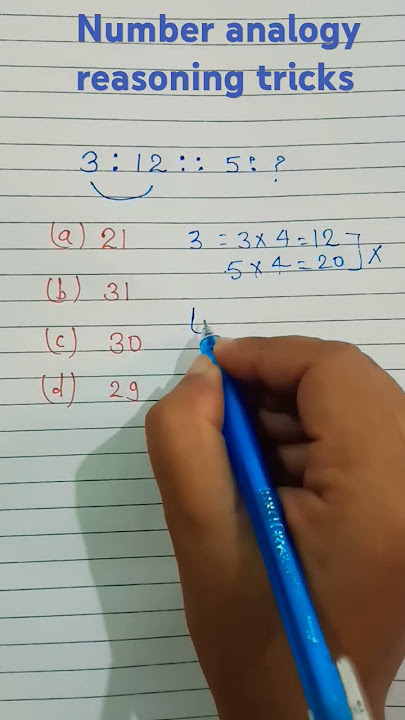 Number analogy
reasoning tricks
3 : 12 :: 5 : ?
(a) 21
3 = 3 × 4 = 12
5 × 4 = 20 ] ×
(b) 31
(c) 30
(d) 29